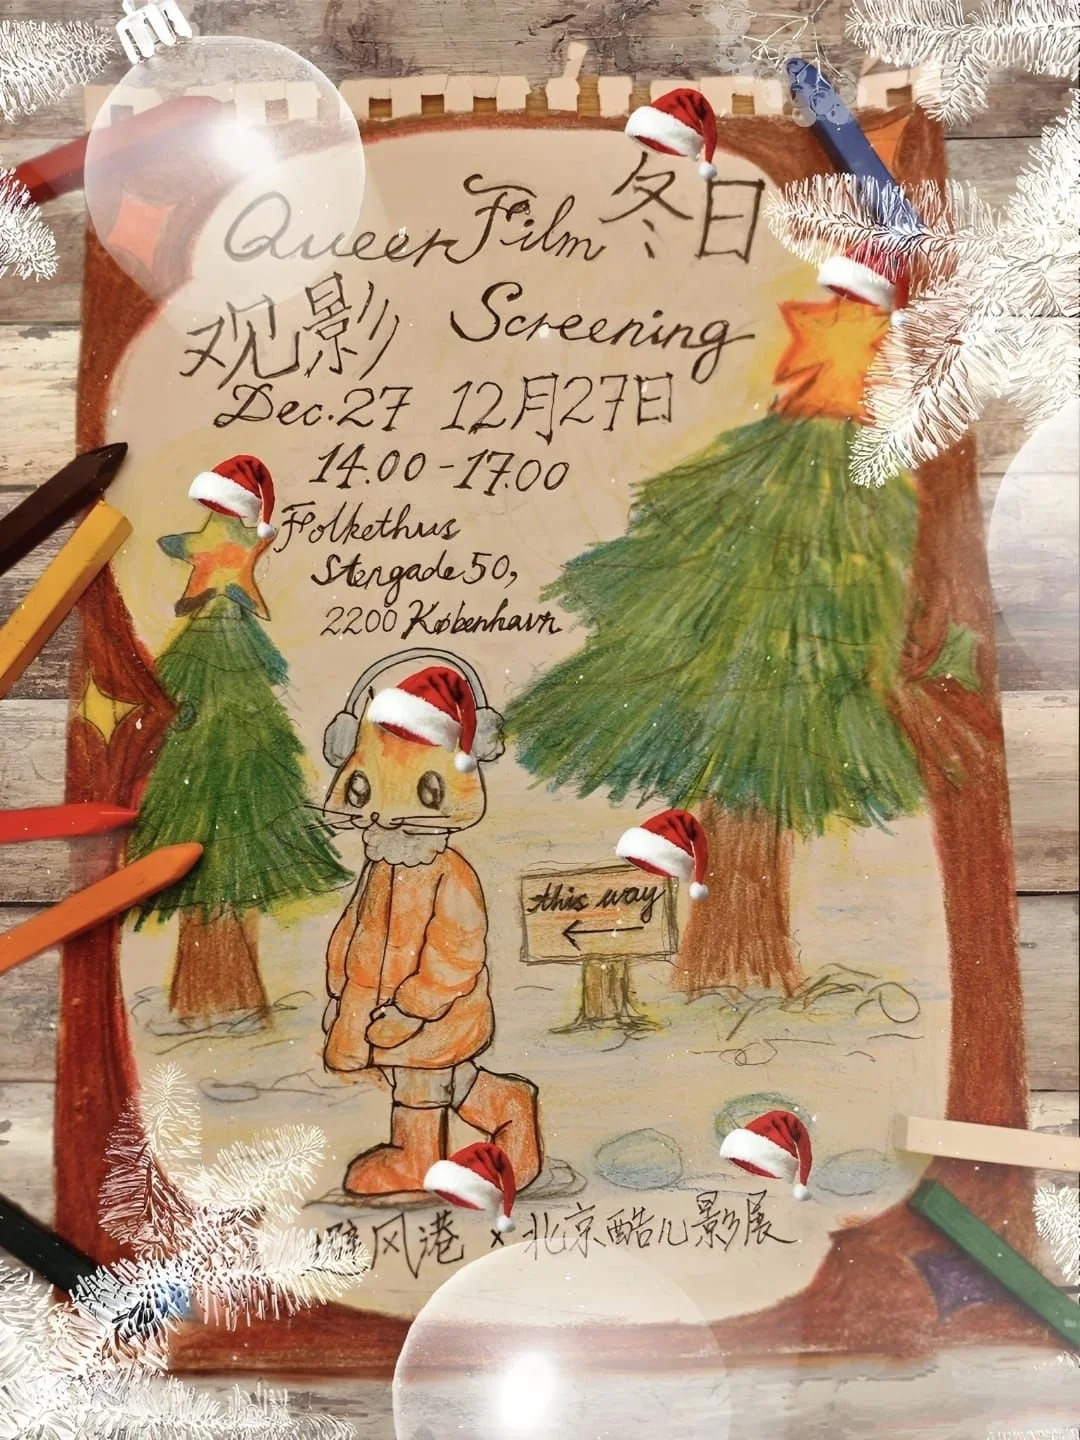 Queer Film 冬日
观影 Screening
Dec.27 12月27日
14.00-17.00
Folkethus
Stengade 50,
2200 København
this way
避风港 × 北京酷儿影展